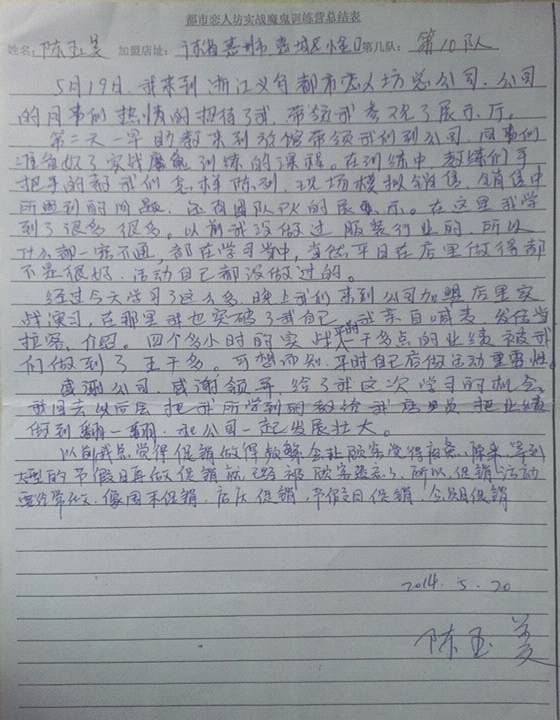 都市恋人坊实战魔鬼训练营总结表
姓名:陈玉美 加盟店址:广东省惠州市惠城区小金口 第几队:第10队
5月19日,我来到浙江义乌都市恋人坊总公司,公司
的同事们热情的招待了我,带领我参观了展示厅。
第二天一早助教来到旅馆带领我们到公司,同事们
准备好了实战魔鬼训练的课程。在训练中,教练们手
把手的教我们怎样陈列,现场模拟销售,销售中
所遇到的问题,还有团队PK的展示。在这里我学
到了很多很多。以前我没做过服装行业的,所以
什么都一窍不通,都在学习当中,当然平日在店里做得都
不是很好,活动自己都没做过的。
经过今天学习了这么多,晚上我们来到公司加盟店里实
战演习,在那里我也突破了我自己,我亲自喊麦,发传单
拉客,介绍。四个多小时的实战,平时一千多点的业绩被我
们做到了五千多。可想而知,平时自己店做活动重要性。
感谢公司,感谢领导,给了我这次学习的机会,
我回去以后会把我所学到的教给我店员,把业绩
做到翻一翻,和公司一起发展壮大。
以前我总觉得促销做得频繁会让顾客觉得疲惫,原来等到
大型的节假日再做促销就已经被顾客遗忘了,所以,促销活动
要经常做,像周末促销,店庆促销,节假日促销,会员日促销
2014.5.20
陈玉美